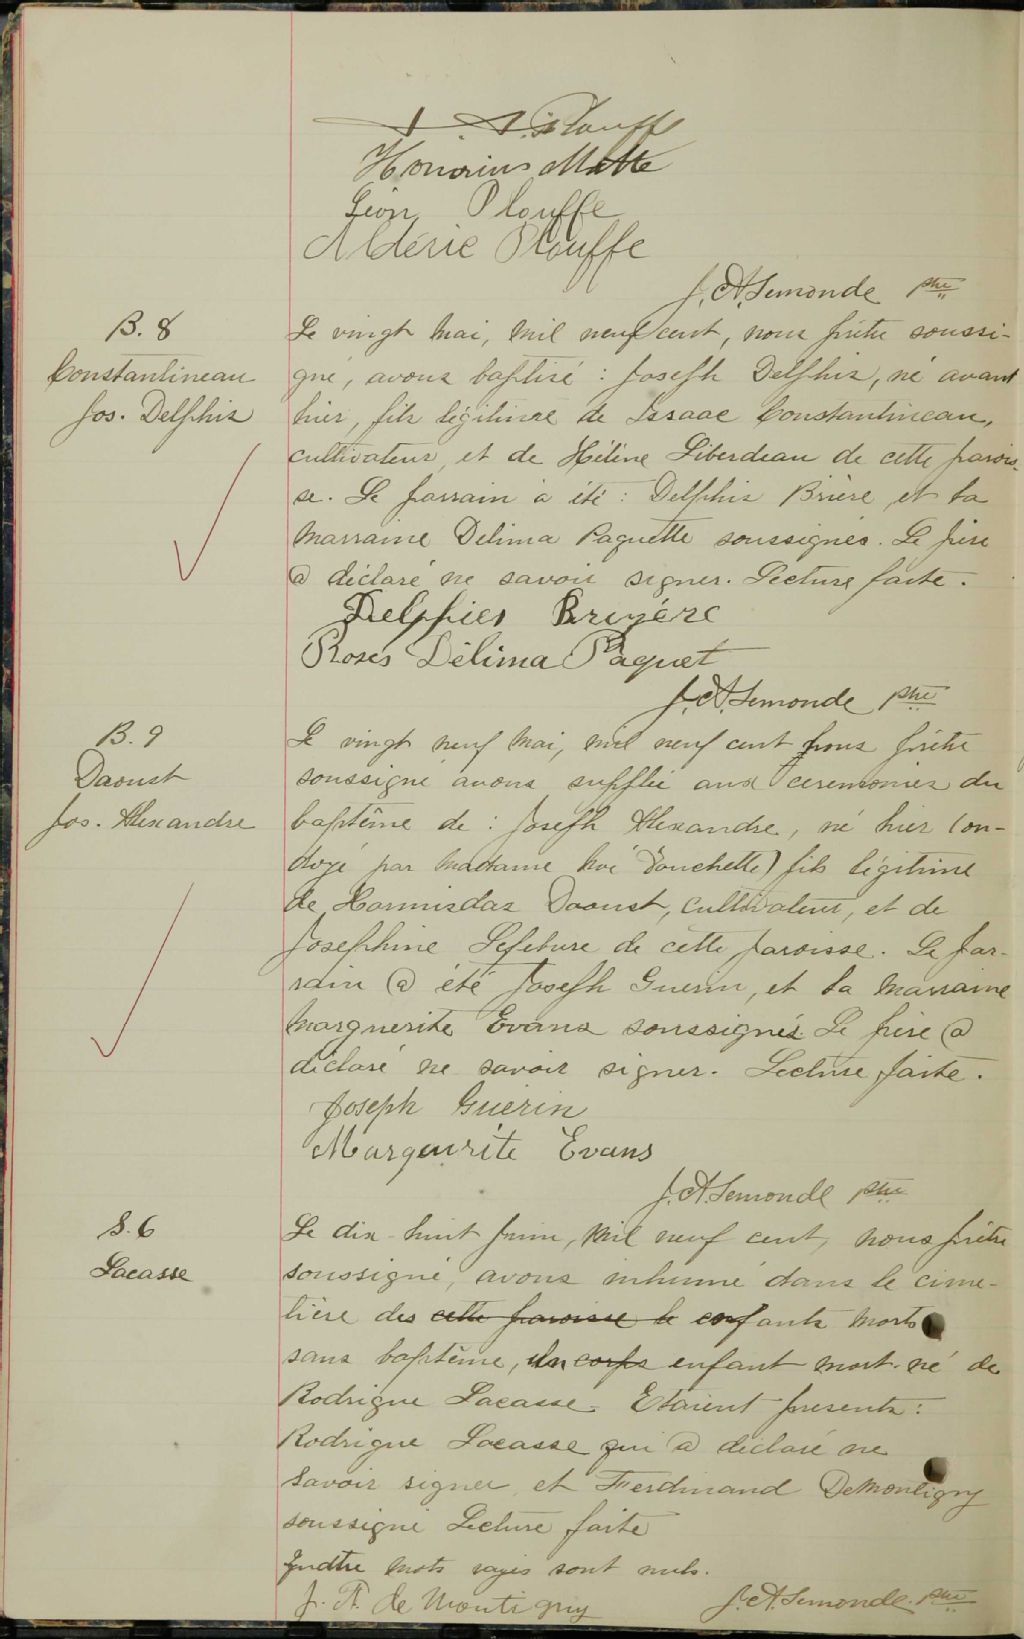 Plouffe
Honorius Matte
Léon Plouffe
Aldéric Plouffe
J. A. Lemonde ptre
B. 8
Constantineau
Jos. Delphis
Le vingt mai, mil neuf cent, nous prêtre soussi-
gné, avons baptisé : Joseph Delphis, né avant
hier, fils légitime de Isaac Constantineau,
cultivateur, et de Hélène Liberdeau de cette parois-
se. Le parrain a été : Delphis Brière et la
marraine Delima Paquette soussignés. Le père
a déclaré ne savoir signer. Lecture faite.
Delphies Bruyére
Roses Délima Paquet
J. A. Lemonde ptre
B. 9
Daoust
Jos. Alexandre
Le vingt neuf mai, mil neuf cent nous prêtre
soussigné avons suppléé aux ceremonies du
baptême de : Joseph Alexandre, né hier (on-
doyé par madame Noé Touchette) fils légitime
de Hormisdas Daoust, cultivateur, et de
Josephine Lefebvre de cette paroisse. Le par-
rain a été Joseph Guerin, et la marraine
Marguerite Evans soussignés. Le père a
déclaré ne savoir signer. Lecture faite.
Joseph Guerin
Marguerite Evans
J. A. Lemonde ptre
S. 6
Lacasse
Le dix-huit juin, mil neuf cent, nous prêtre
soussigné, avons inhumé dans le cime-
tière des cette paroisse le corps enfants morts
sans baptême, un corps enfant mort-né de
Rodrigue Lacasse. Etaient presents :
Rodrigue Lacasse qui a déclaré ne
savoir signer et Ferdinand DeMontigny
soussigné Lecture faite
Quatre mots rayés sont nuls.
J. F. de Montigny
J. A. Lemonde ptre